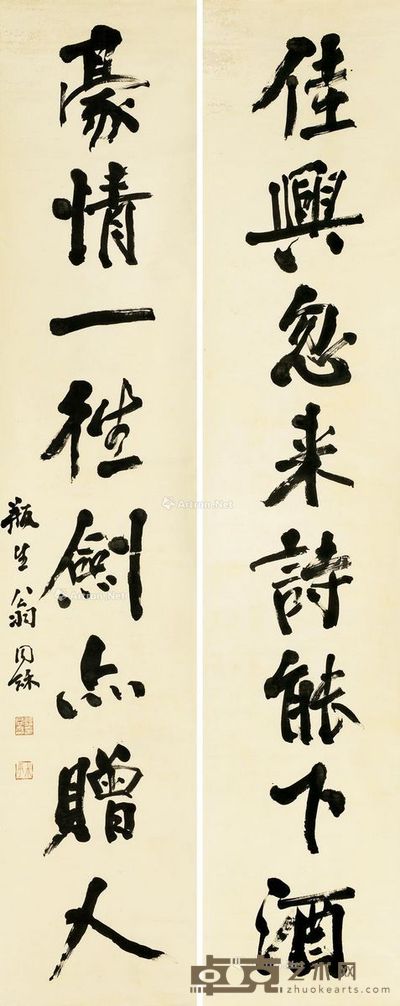 佳興忽来詩能下酒
豪情一往劍亦贈人
瓶生翁同龢
Artron.Net
Artron.Net
卓克艺术网
zhuokearts.com